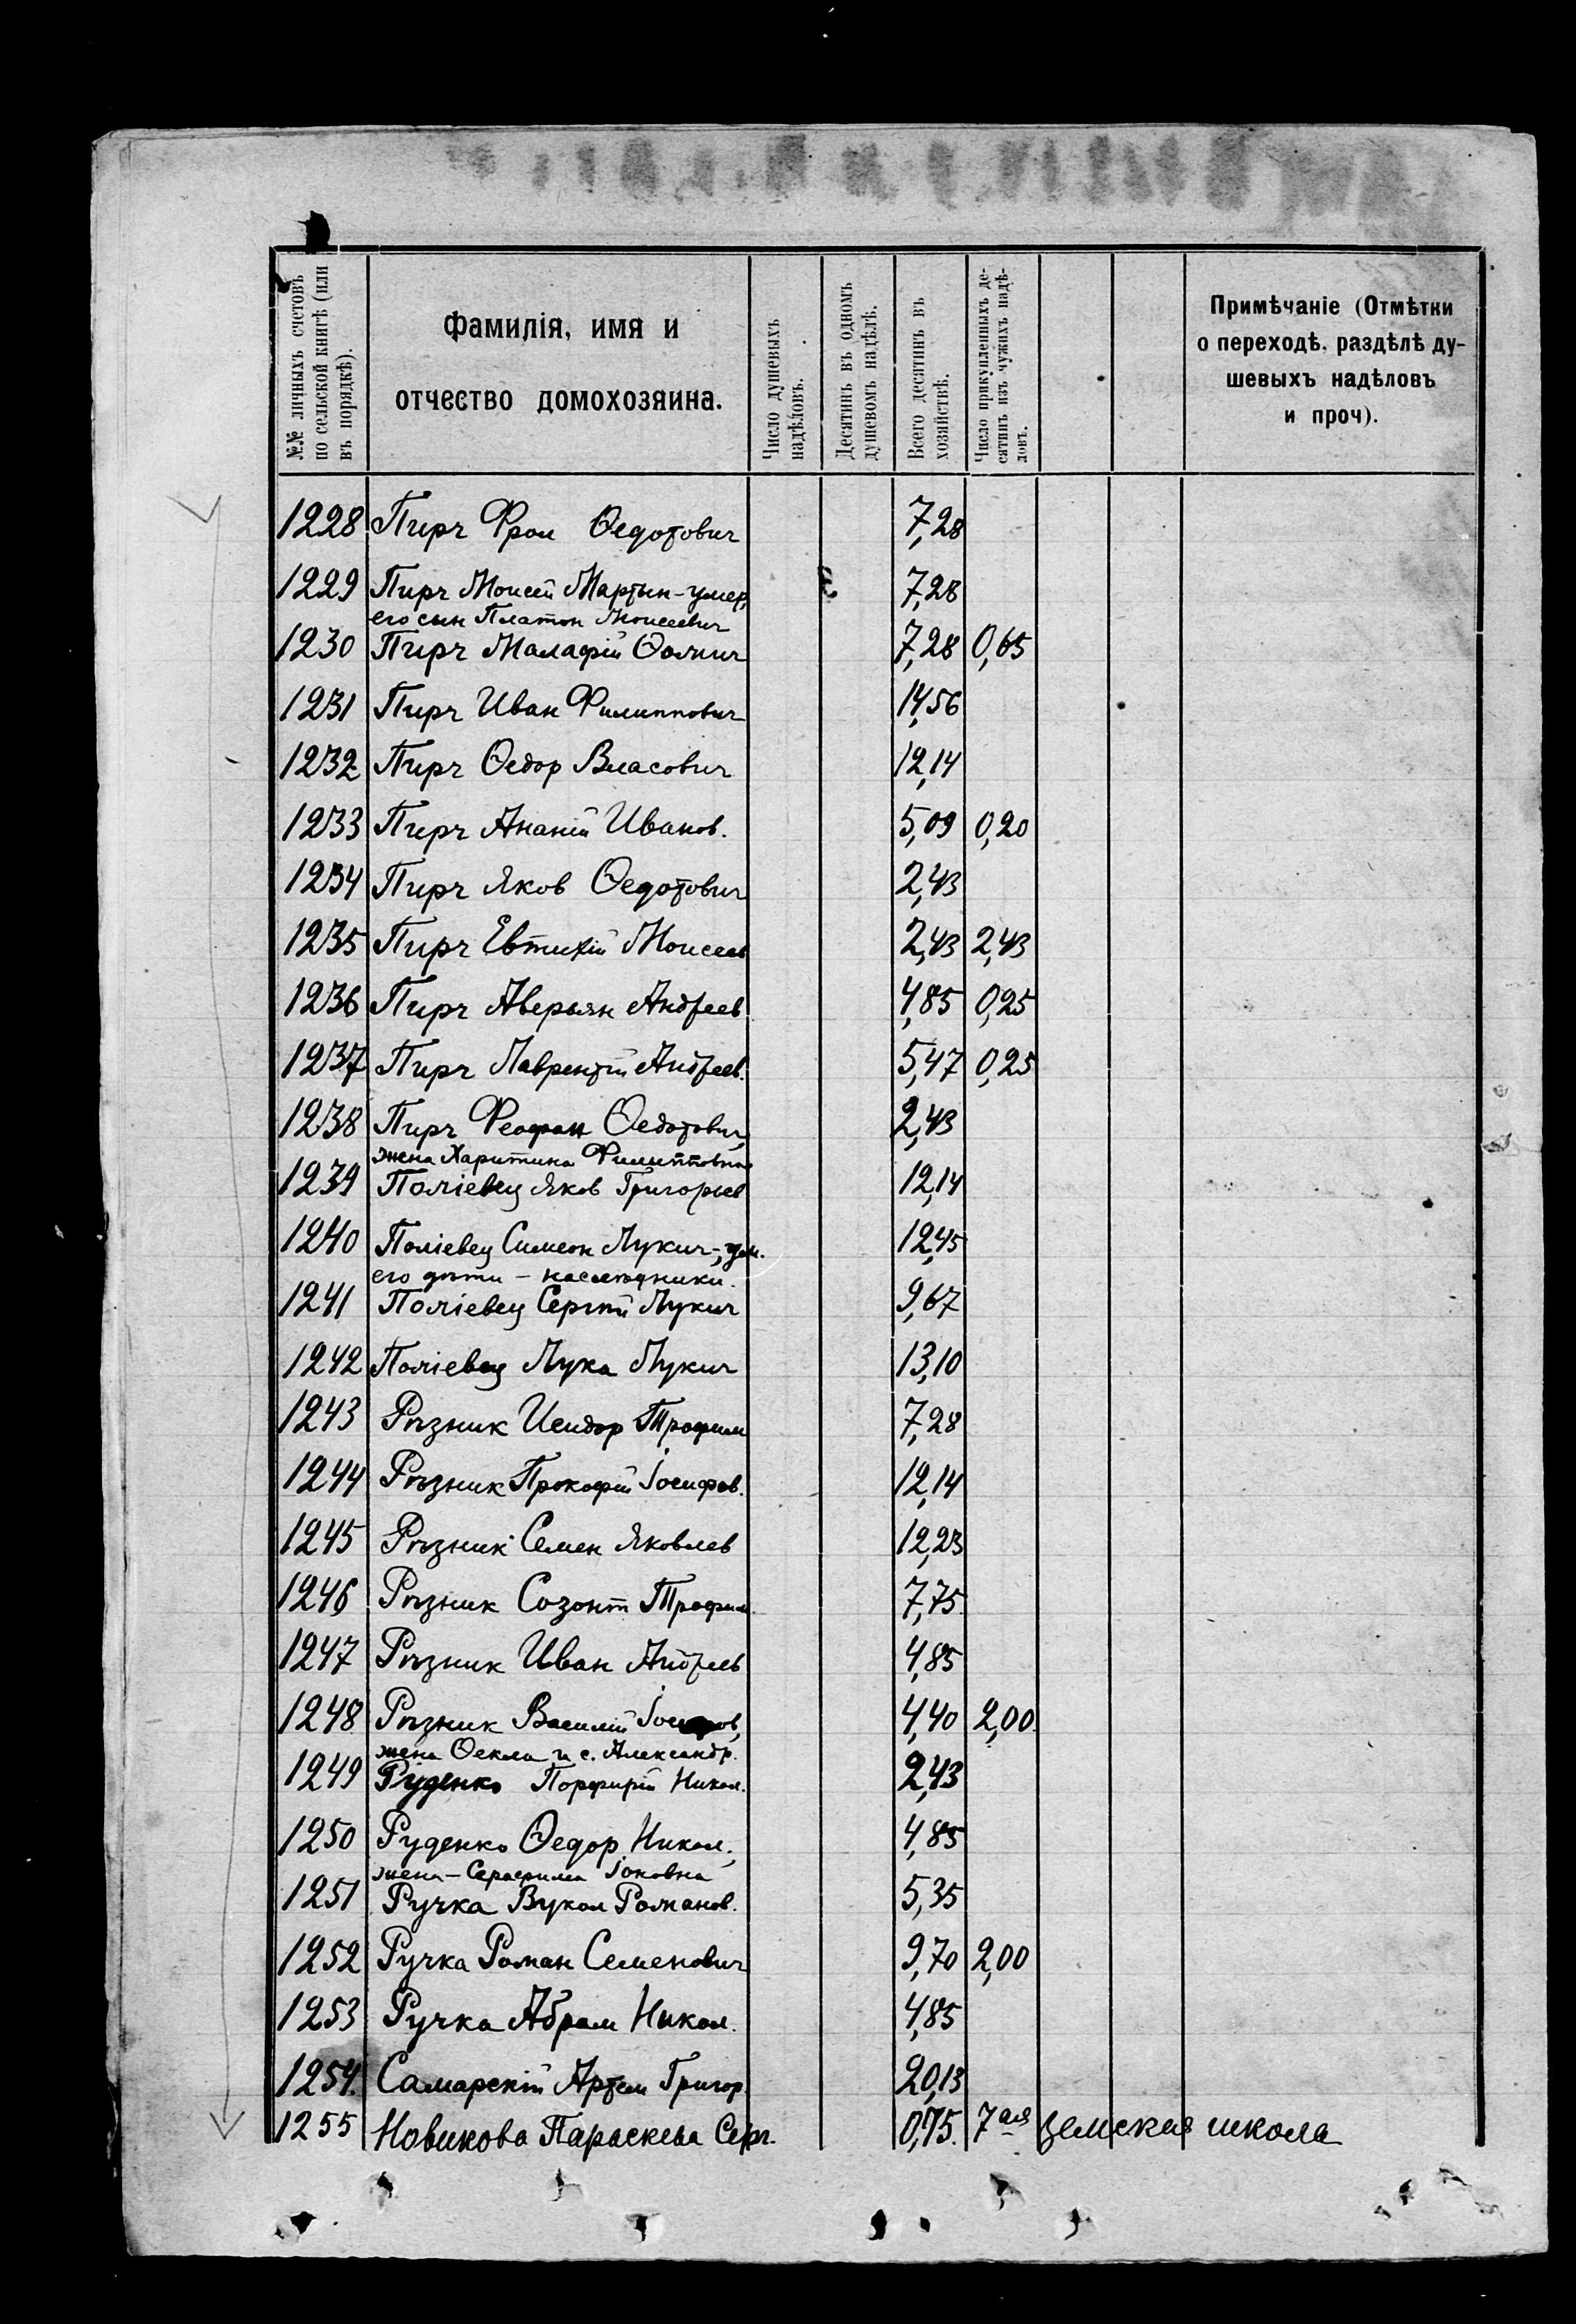 №№ личныхъ счетовъ
по сельской книгѣ (или
въ порядкѣ).
Фамилія, имя и
отчество домохозяина.
Число душевыхъ
надѣловъ.
Десятинъ въ одномъ
душевомъ надѣлѣ.
Всего десятинъ въ
хозяйствѣ.
Число прикупленныхъ де-
сятинъ изъ чужихъ надѣ-
ловъ.
Примѣчаніе (Отмѣтки
о переходѣ. раздѣлѣ ду-
шевыхъ надѣловъ
и проч).
1228 Пирч Фрол Ѳедотович 7,28
1229 Пирч Моисей Мартын-умер, 7,28
его сын Платон Моисеевич
1230 Пирч Малафій Ѳомич 7,28 0,65
1231 Пирч Иван Филиппович 14,56
1232 Пирч Ѳедор Власович 12,14
1233 Пирч Ананій Иванов. 5,09 0,20
1234 Пирч Яков Ѳедотович 2,43
1235 Пирч Евтихій Моисеев 2,43 2,43
1236 Пирч Аверьян Андреев 4,85 0,25
1237 Пирч Лаврентій Андреев. 5,47 0,25
1238 Пирч Феофан Ѳедотович, 2,43
жена Харитина Филипповна
1239 Поліевец Яков Григорьев 12,14
1240 Поліевец Симеон Лукич-, ум. 12,45
его дѣти - наслѣдники.
1241 Поліевец Сергѣй Лукич 9,67
1242 Поліевец Лука Лукич 13,10
1243 Рѣзник Исидор Трофим 7,28
1244 Рѣзник Прокофій Іосифов. 12,14
1245 Рѣзник Семен Яковлев 12,23
1246 Рѣзник Созонт Трофим. 7,75
1247 Рѣзник Иван Андреев 4,85
1248 Рѣзник Василій Іосифов, 4,40 2,00
жена Ѳекла и с. Александр.
1249 Руденко Порфирій Никол. 2,43
1250 Руденко Ѳедор Никол., 4,85
жена-Серафима Іоновна
1251 Ручка Вукол Романов. 5,35
1252 Ручка Роман Семенович 9,70 2,00
1253 Ручка Абрам Никол. 4,85
1254. Самарскій Артем Григор. 20,13
1255 Новикова Параскева Серг. 0,75. 7ая земская школа